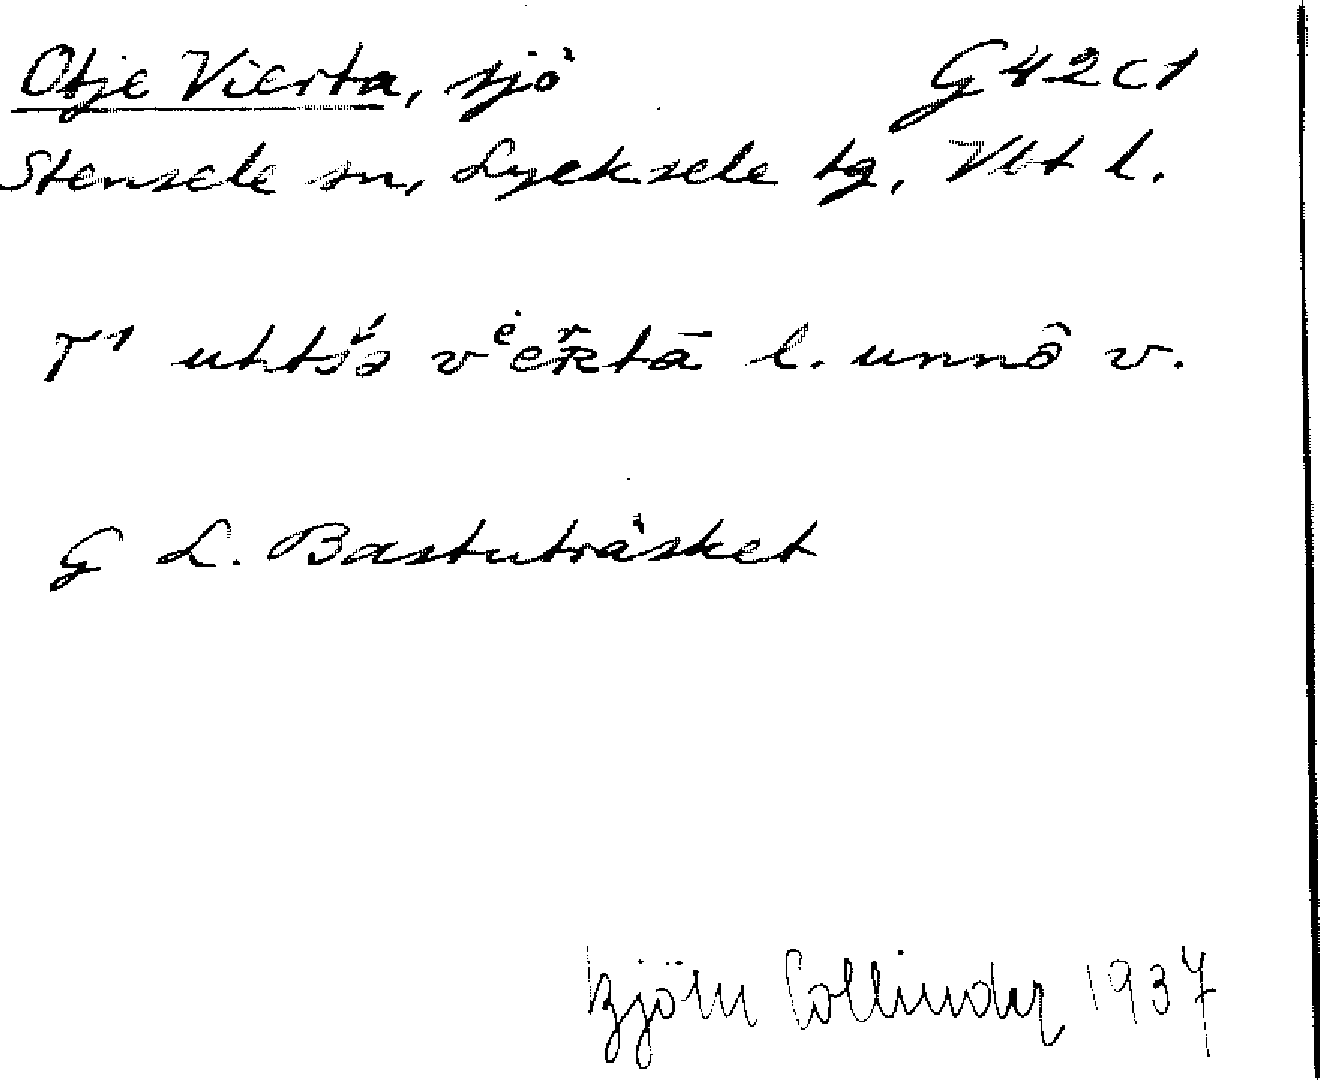 Otje Vierta, sjö G42c1
Stensele sn, Lycksele tg, Vbt l.
T1 l. unnô v.
G L. Bastuträsket
Björn Collinder 1937